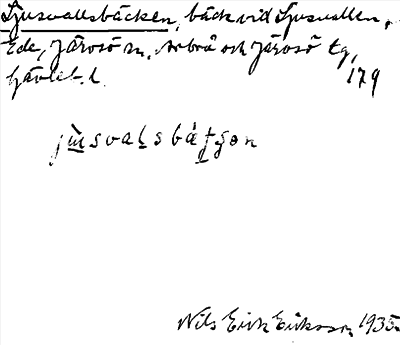 Ljusvallsbäcken, bäck vid Ljusvallen,
Ede, Järvsö sn, Arbrå och Järvsö tg,
Gävleb. l. 179
jʉ̀svalsbátʃən
Nils Erik Eriksson 1935.